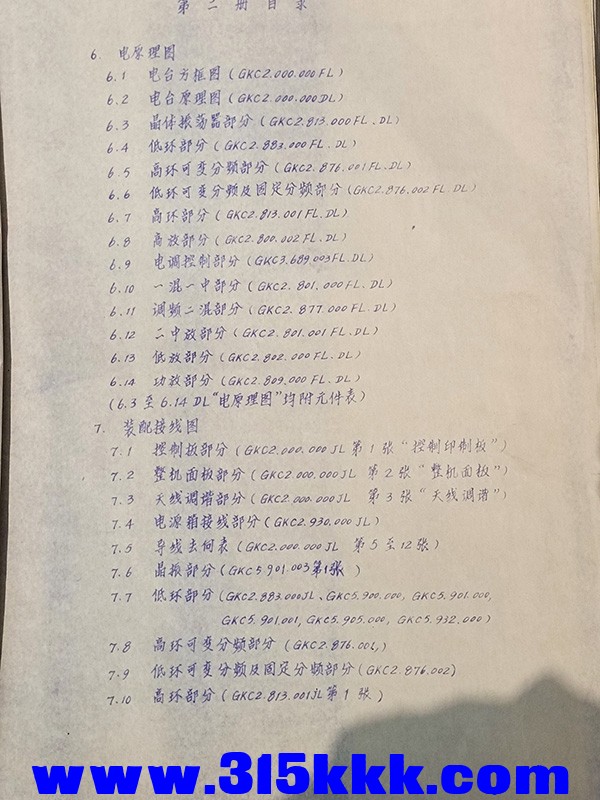 第二册目录
6. 电原理图
6.1 电台方框图(GKC2.000.000FL)
6.2 电台原理图(GKC2.000.000DL)
6.3 晶体振荡器部分(GKC2.813.000FL.DL)
6.4 低环部分(GKC2.883.000FL.DL)
6.5 高环可变分频部分(GKC2.876.001FL.DL)
6.6 低环可变分频及固定分频部分(GKC2.876.002FL.DL)
6.7 高环部分(GKC2.813.001FL.DL)
6.8 高放部分(GKC2.800.002FL.DL)
6.9 电调控制部分(GKC3.689.003FL.DL)
6.10 一混一中部分(GKC2.801.000FL.DL)
6.11 调频二混部分(GKC2.877.000FL.DL)
6.12 二中放部分(GKC2.801.001FL.DL)
6.13 低放部分(GKC2.802.000FL.DL)
6.14 功放部分(GKC2.809.000FL.DL)
(6.3至6.14DL"电原理图"均附元件表)
7. 装配接线图
7.1 控制板部分(GKC2.000.000JL 第1张"控制印制板")
7.2 整机面板部分(GKC2.000.000JL 第2张"整机面板")
7.3 天线调谐部分(GKC2.000.000JL 第3张"天线调谐")
7.4 电源箱接线部分(GKC2.930.000JL)
7.5 导线去向表(GKC2.000.000JL 第5至12张)
7.6 晶振部分(GKC5.901.003第1张)
7.7 低环部分(GKC2.883.000JL、GKC5.900.000, GKC5.901.000,
GKC5.901.001, GKC5.905.000, GKC5.932.000)
7.8 高环可变分频部分(GKC2.876.001,)
7.9 低环可变分频及固定分频部分(GKC2.876.002)
7.10 高环部分(GKC2.813.001JL第1张)
www.315kkk.com